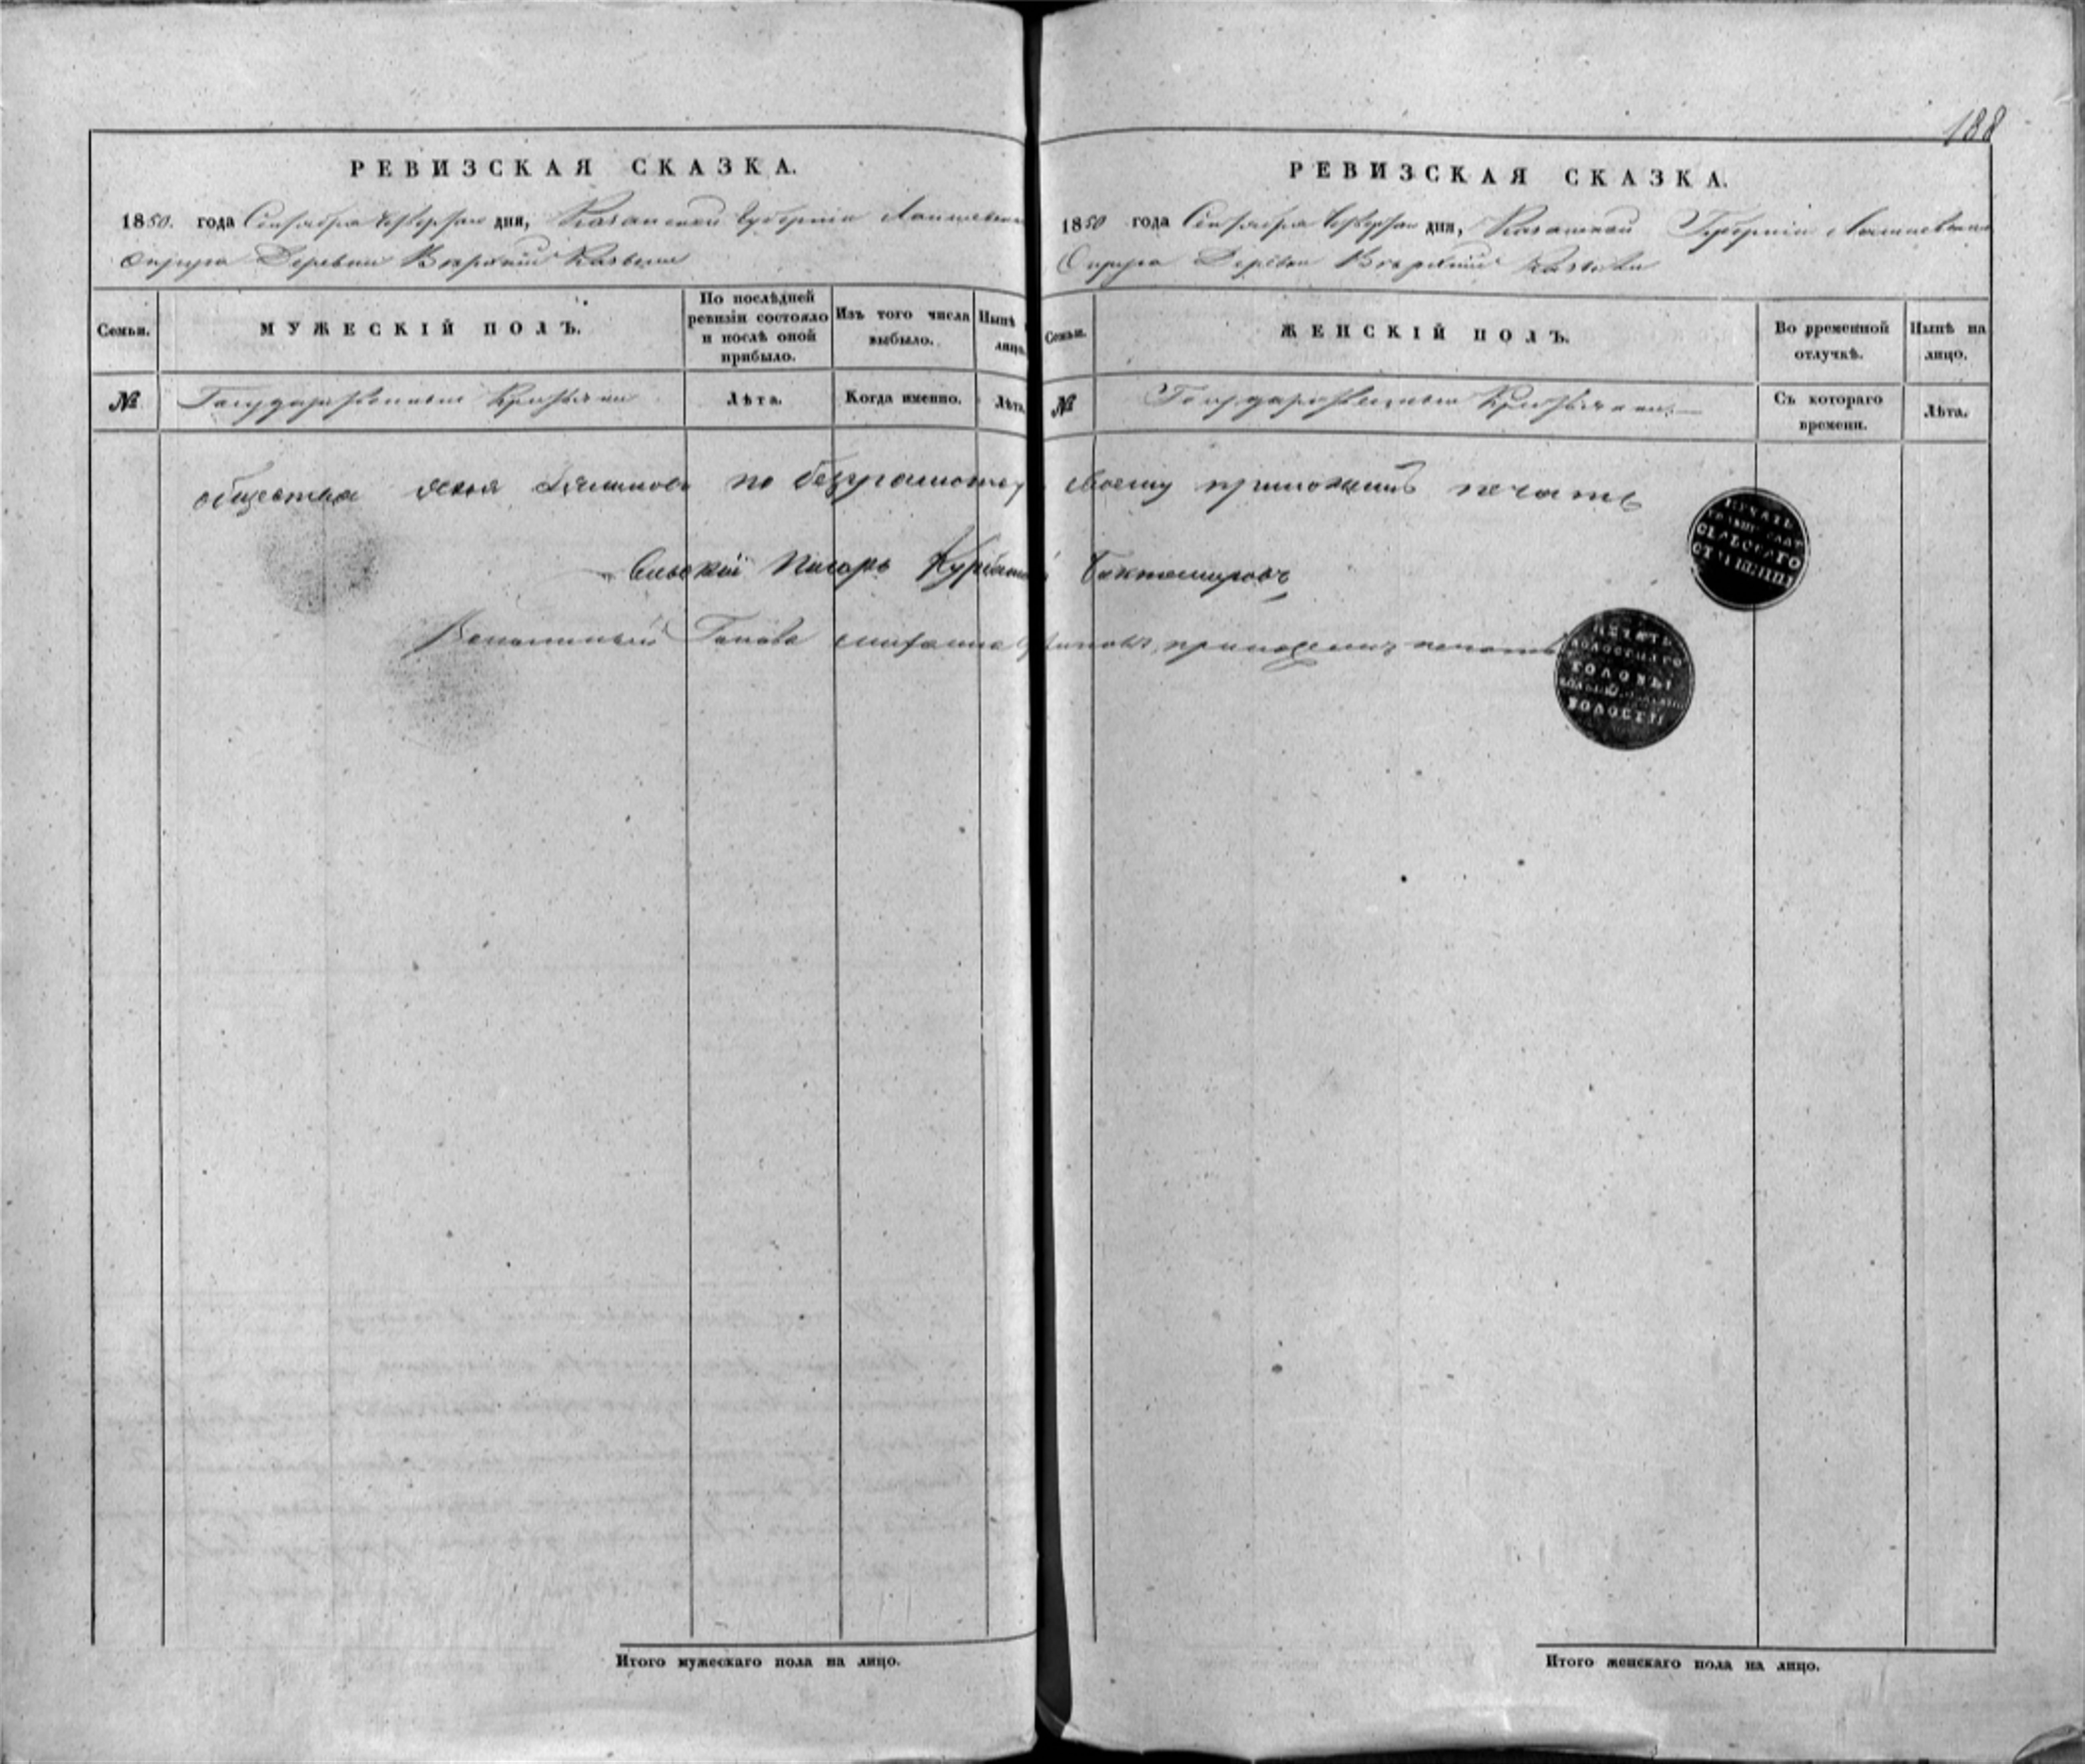 188
РЕВИЗСКАЯ СКАЗКА.
1850. года Сентября четвертаго дня, Казанской Губерніи Лаишевскаго
Округа Деревни Верхний
Семьи.
МУЖЕСКІЙ ПОЛЪ.
По послѣдней ревизіи состояло и послѣ оной прибыло.
Изъ того числа выбыло.
Нынѣ лицо
№
Государственные Крестьяне
Лѣта.
Когда именно.
Лѣта
РЕВИЗСКАЯ СКАЗКА.
1850 года Сентября четвертаго дня, Казанской Губерніи Лаишевскаго
Округа Деревни Верхний
Семьи.
ЖЕНСКІЙ ПОЛЪ.
Во временной отлучкѣ.
Нынѣ на лицо.
№
Государственные Крестьяне
Съ котораго времени.
Лѣта.
общества по безграмотству своему приложилъ печать
Сельскій Писарь Бактемировъ
Волостный Голова приложилъ печать
ПЕЧАТЬ
СЕЛЬСКАГО
СТАРШИНЫ
ПЕЧАТЬ
ВОЛОСТНАГО
ГОЛОВЫ
ВОЛОСТИ
Итого мужескаго пола на лицо.
Итого женскаго пола на лицо.